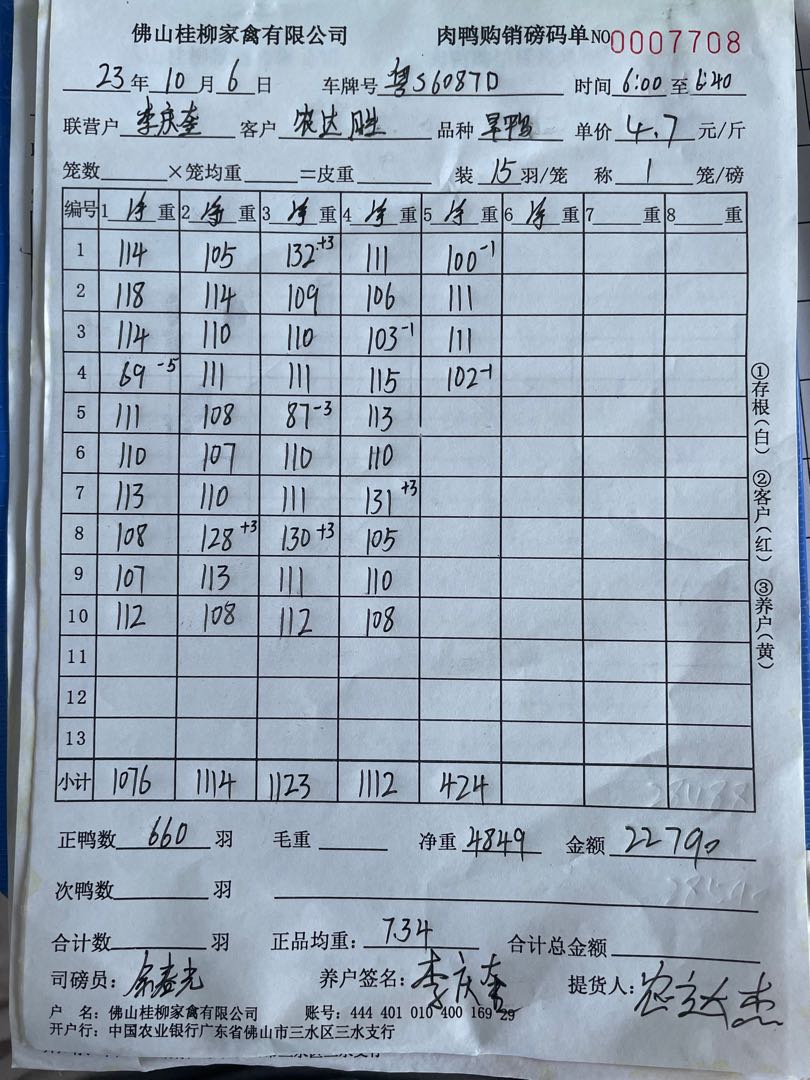 佛山桂柳家禽有限公司 肉鸭购销磅码单NO0007708
23年10月6日 车牌号粤S6087D 时间6:00至6:40
联营户李庆奎 客户农达胜 品种旱鸭 单价4.7元/斤
笼数×笼均重=皮重 装15羽/笼 称1笼/磅
编号 1净重 2净重 3净重 4净重 5净重 6净重 7重 8重
1 114 105 132+3 111 100-1
2 118 114 109 106 111
3 114 110 110 103-1 111
4 69-5 111 111 115 102-1
5 111 108 87-3 113
6 110 107 110 110
7 113 110 111 131+3
8 108 128+3 130+3 105
9 107 113 111 110
10 112 108 112 108
11
12
13
小计 1076 1114 1123 1112 424
①存根(白) ②客户(红) ③养户(黄)
正鸭数660羽 毛重 净重4849 金额22790
次鸭数羽
合计数羽 正品均重:7.34 合计总金额
司磅员: 养户签名:李庆奎 提货人:
户 名:佛山桂柳家禽有限公司 账号:444 401 010 400 169 29
开户行:中国农业银行广东省佛山市三水区三水支行